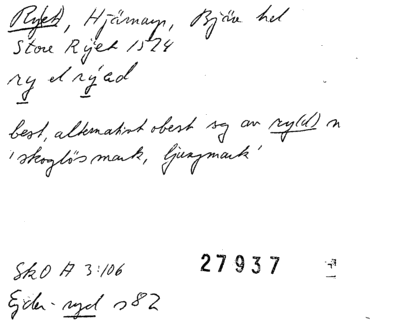 Ry(et), Hjärnarp, Bjäre hd
Store Ryet 1574
ry el ryad
best, alternativt obest sg av ry(d) n
'skoglös mark, ljungmark'
SkO A 3:106
27937
Ejder-ryd s 82